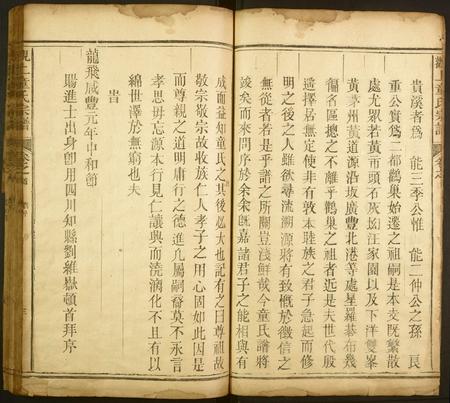 貴溪者爲　能三李公惟　能二仲公之孫　良
重公實爲二都鸛巢始遷之祖嗣是本支既繁散
處尤眾若黃市頭石灰㘭汪家園以及下洋雙峯
黃茅州黃道源沿坂廣豐北港等處星羅碁布幾
徧各區揔之不離乎鸛巢之祖者近是夫世代殷
遙擇居無定使非有敦本睦族之君子急起而修
明之後之人雖欲尋流溯源將有致慨於徵信之
無從者若是乎譜之所關豈淺鮮哉今童氏譜將
竣而來問序於余余旣嘉諸君子之能相與有
成而益知童氏之其後必大也記有之曰尊祖故
敬宗敬宗故收族仁人孝子之用心固如此因是
而尊親之道明庸行之德進凡屬嗣裔莫不永言
孝思毋忘源本行見仁讓興而澆漓化不且有以
綿世澤於無窮也夫
旹
龍飛咸豐元年中和節
賜進士出身卽用四川知縣劉維嶽頓首拜序
觀上童氏宗譜